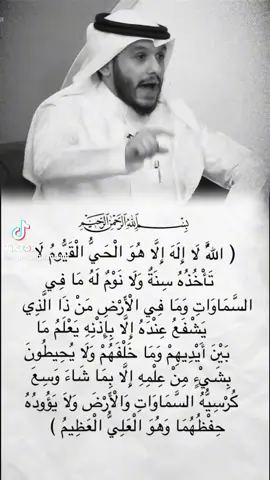 بِسْمِ اللَّهِ الرَّحْمَٰنِ الرَّحِيمِ
( اللَّهُ لَا إِلَهَ إِلَّا هُوَ الْحَيُّ الْقَيُّومُ لَا
تَأْخُذُهُ سِنَةٌ وَلَا نَوْمٌ لَهُ مَا فِي
السَّمَاوَاتِ وَمَا فِي الْأَرْضِ مَنْ ذَا الَّذِي
يَشْفَعُ عِنْدَهُ إِلَّا بِإِذْنِهِ يَعْلَمُ مَا
بَيْنَ أَيْدِيهِمْ وَمَا خَلْفَهُمْ وَلَا يُحِيطُونَ
بِشَيْءٍ مِنْ عِلْمِهِ إِلَّا بِمَا شَاءَ وَسِعَ
كُرْسِيُّهُ السَّمَاوَاتِ وَالْأَرْضَ وَلَا يَؤُودُهُ
حِفْظُهُمَا وَهُوَ الْعَلِيُّ الْعَظِيمُ )